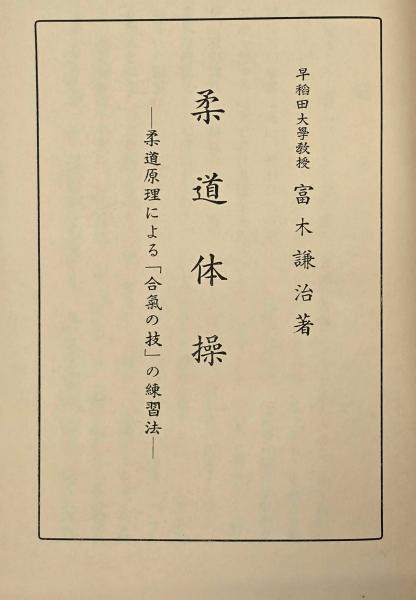 早稻田大學教授　富木謙治著
柔道体操
―柔道原理による「合氣の技」の練習法―